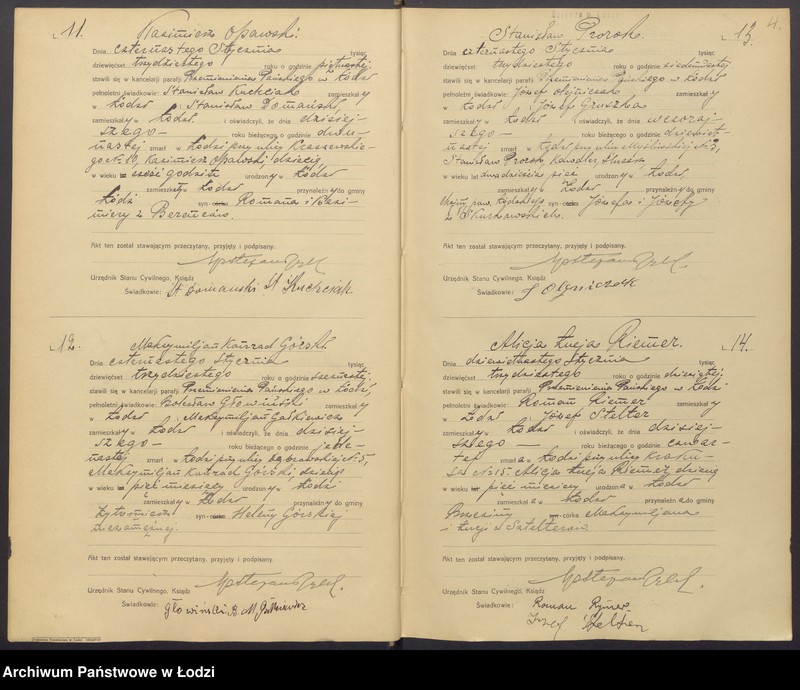 11.
Kazimierz Opawski.
Dnia czternastego Stycznia tysiąc
dziewięćset trzydziestego roku o godzinie piętnastej
stawili się w kancelarji parafji Przemienienia Pańskiego w Łodzi
pełnoletni świadkowie: Stanisław Kuchciak zamieszkały
w Łodzi, Stanisław Domański,
zamieszkały w Łodzi i oświadczyli, że dnia dzisiej-
szego — roku bieżącego o godzinie dwu-
nastej zmarł w Łodzi przy ulicy Kraszewskie-
go Kazimierz Opawski dziecię
w wieku sześć godzin urodzony w Łodzi
zamieszkały w Łodzi przynależny do gminy
Łódź syn-córka Romana i Kazi-
miery z
Akt ten został stawającym przeczytany, przyjęty i podpisany.
Urzędnik Stanu Cywilnego, Ksiądz
Świadkowie: St Domański St Kuchciak
12.
Maksymiljan Konrad Górski.
Dnia czternastego Stycznia tysiąc
dziewięćset trzydziestego roku o godzinie szesnastej
stawili się w kancelarji parafji Przemienienia Pańskiego w Łodzi,
pełnoletni świadkowie: Bolesław Głowiński zamieszkały
w Łodzi, Maksymiljan Gałkiewicz
zamieszkały w Łodzi i oświadczyli, że dnia dzisiej-
szego — roku bieżącego o godzinie jede-
nastej zmarł w Łodzi przy ulicy 5,
Maksymiljan Konrad Górski, dziecię
w wieku pięć miesięcy urodzony w Łodzi
zamieszkały w Łodzi przynależny do gminy
syn-córka Heleny Górskiej
niezamężnej.
Akt ten został stawającym przeczytany, przyjęty i podpisany.
Urzędnik Stanu Cywilnego, Ksiądz
Świadkowie: Głowiński B. M. Gałkiewicz
4.
13.
Stanisław Prorok.
Dnia czternastego Stycznia tysiąc
dziewięćset trzydziestego roku o godzinie siedemnastej
stawili się w kancelarji parafji Przemienienia Pańskiego w Łodzi
pełnoletni świadkowie: Józef Olejniczak zamieszkały
w Łodzi, Józef Gruszka
zamieszkały w Łodzi i oświadczyli, że dnia wczoraj-
szego — roku bieżącego o godzinie dziewięt-
nastej zmarł w Łodzi przy ulicy Myśliwskiej № 3,
Stanisław Prorok, Kawaler,
w wieku lat dwadzieścia pięć urodzony w Łodzi
zamieszkały w Łodzi przynależny do gminy
syn-córka Józefa i Józefy
z
Akt ten został stawającym przeczytany, przyjęty i podpisany.
Urzędnik Stanu Cywilnego, Ksiądz
Świadkowie: J Olejniczak
14.
Alicja Łucja Riemer.
Dnia dziewiętnastego Stycznia tysiąc
dziewięćset trzydziestego roku o godzinie dziewiątej
stawili się w kancelarji parafji Przemienienia Pańskiego w Łodzi
pełnoletni świadkowie: Roman Riemer zamieszkały
w Łodzi, Józef Stelter
zamieszkały w Łodzi i oświadczyli, że dnia dzisiej-
szego — roku bieżącego o godzinie czwar-
tej zmarła w Łodzi przy ulicy Kraku-
sa № 15 Alicja Łucja Riemer dziecię
w wieku pięć miesięcy urodzona w Łodzi
zamieszkała w Łodzi przynależna do gminy
Brzeziny syn-córka Maksymiljana
i Łucji z Stelterów
Akt ten został stawającym przeczytany, przyjęty i podpisany.
Urzędnik Stanu Cywilnego, Ksiądz
Świadkowie: Roman Rymer
Józef Stelter
Archiwum Państwowe w Łodzi